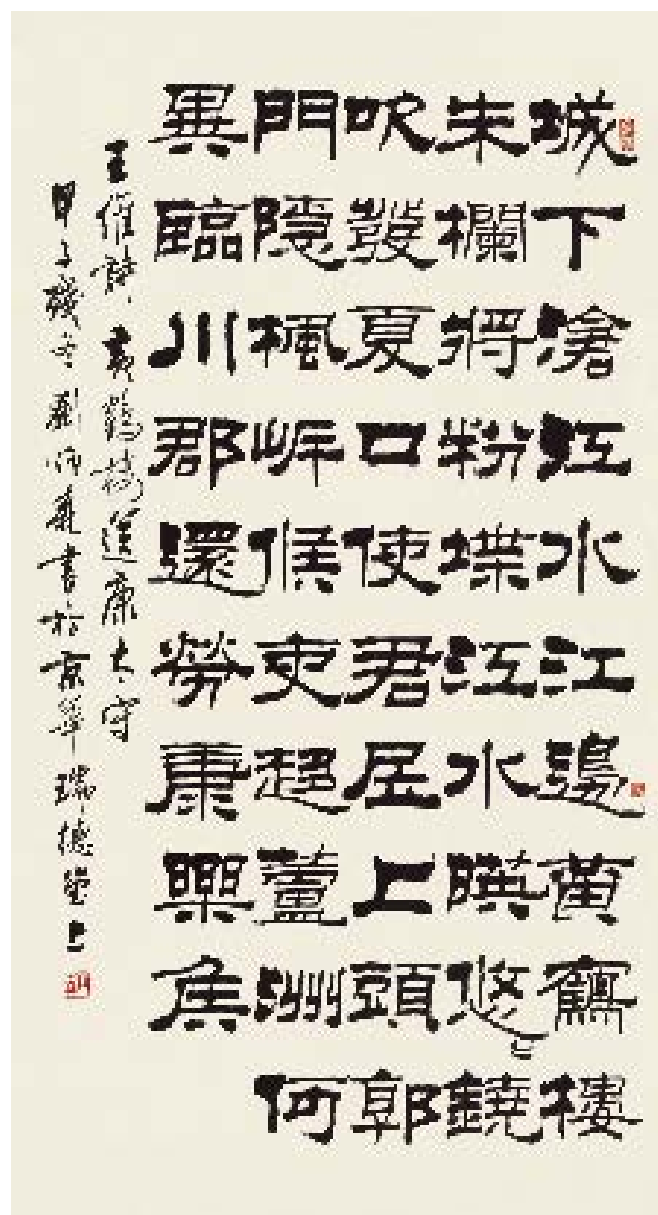 城下滄江水江邊黃鶴樓
朱欄將粉堞江水暎悠〻鐃
吹發夏口使君居上頭郭
門隱楓岸候吏趨蘆洲何
異臨川郡還勞康樂侯
王維詩黃鶴樓送康太守
甲子殘冬劉炳森書於京華